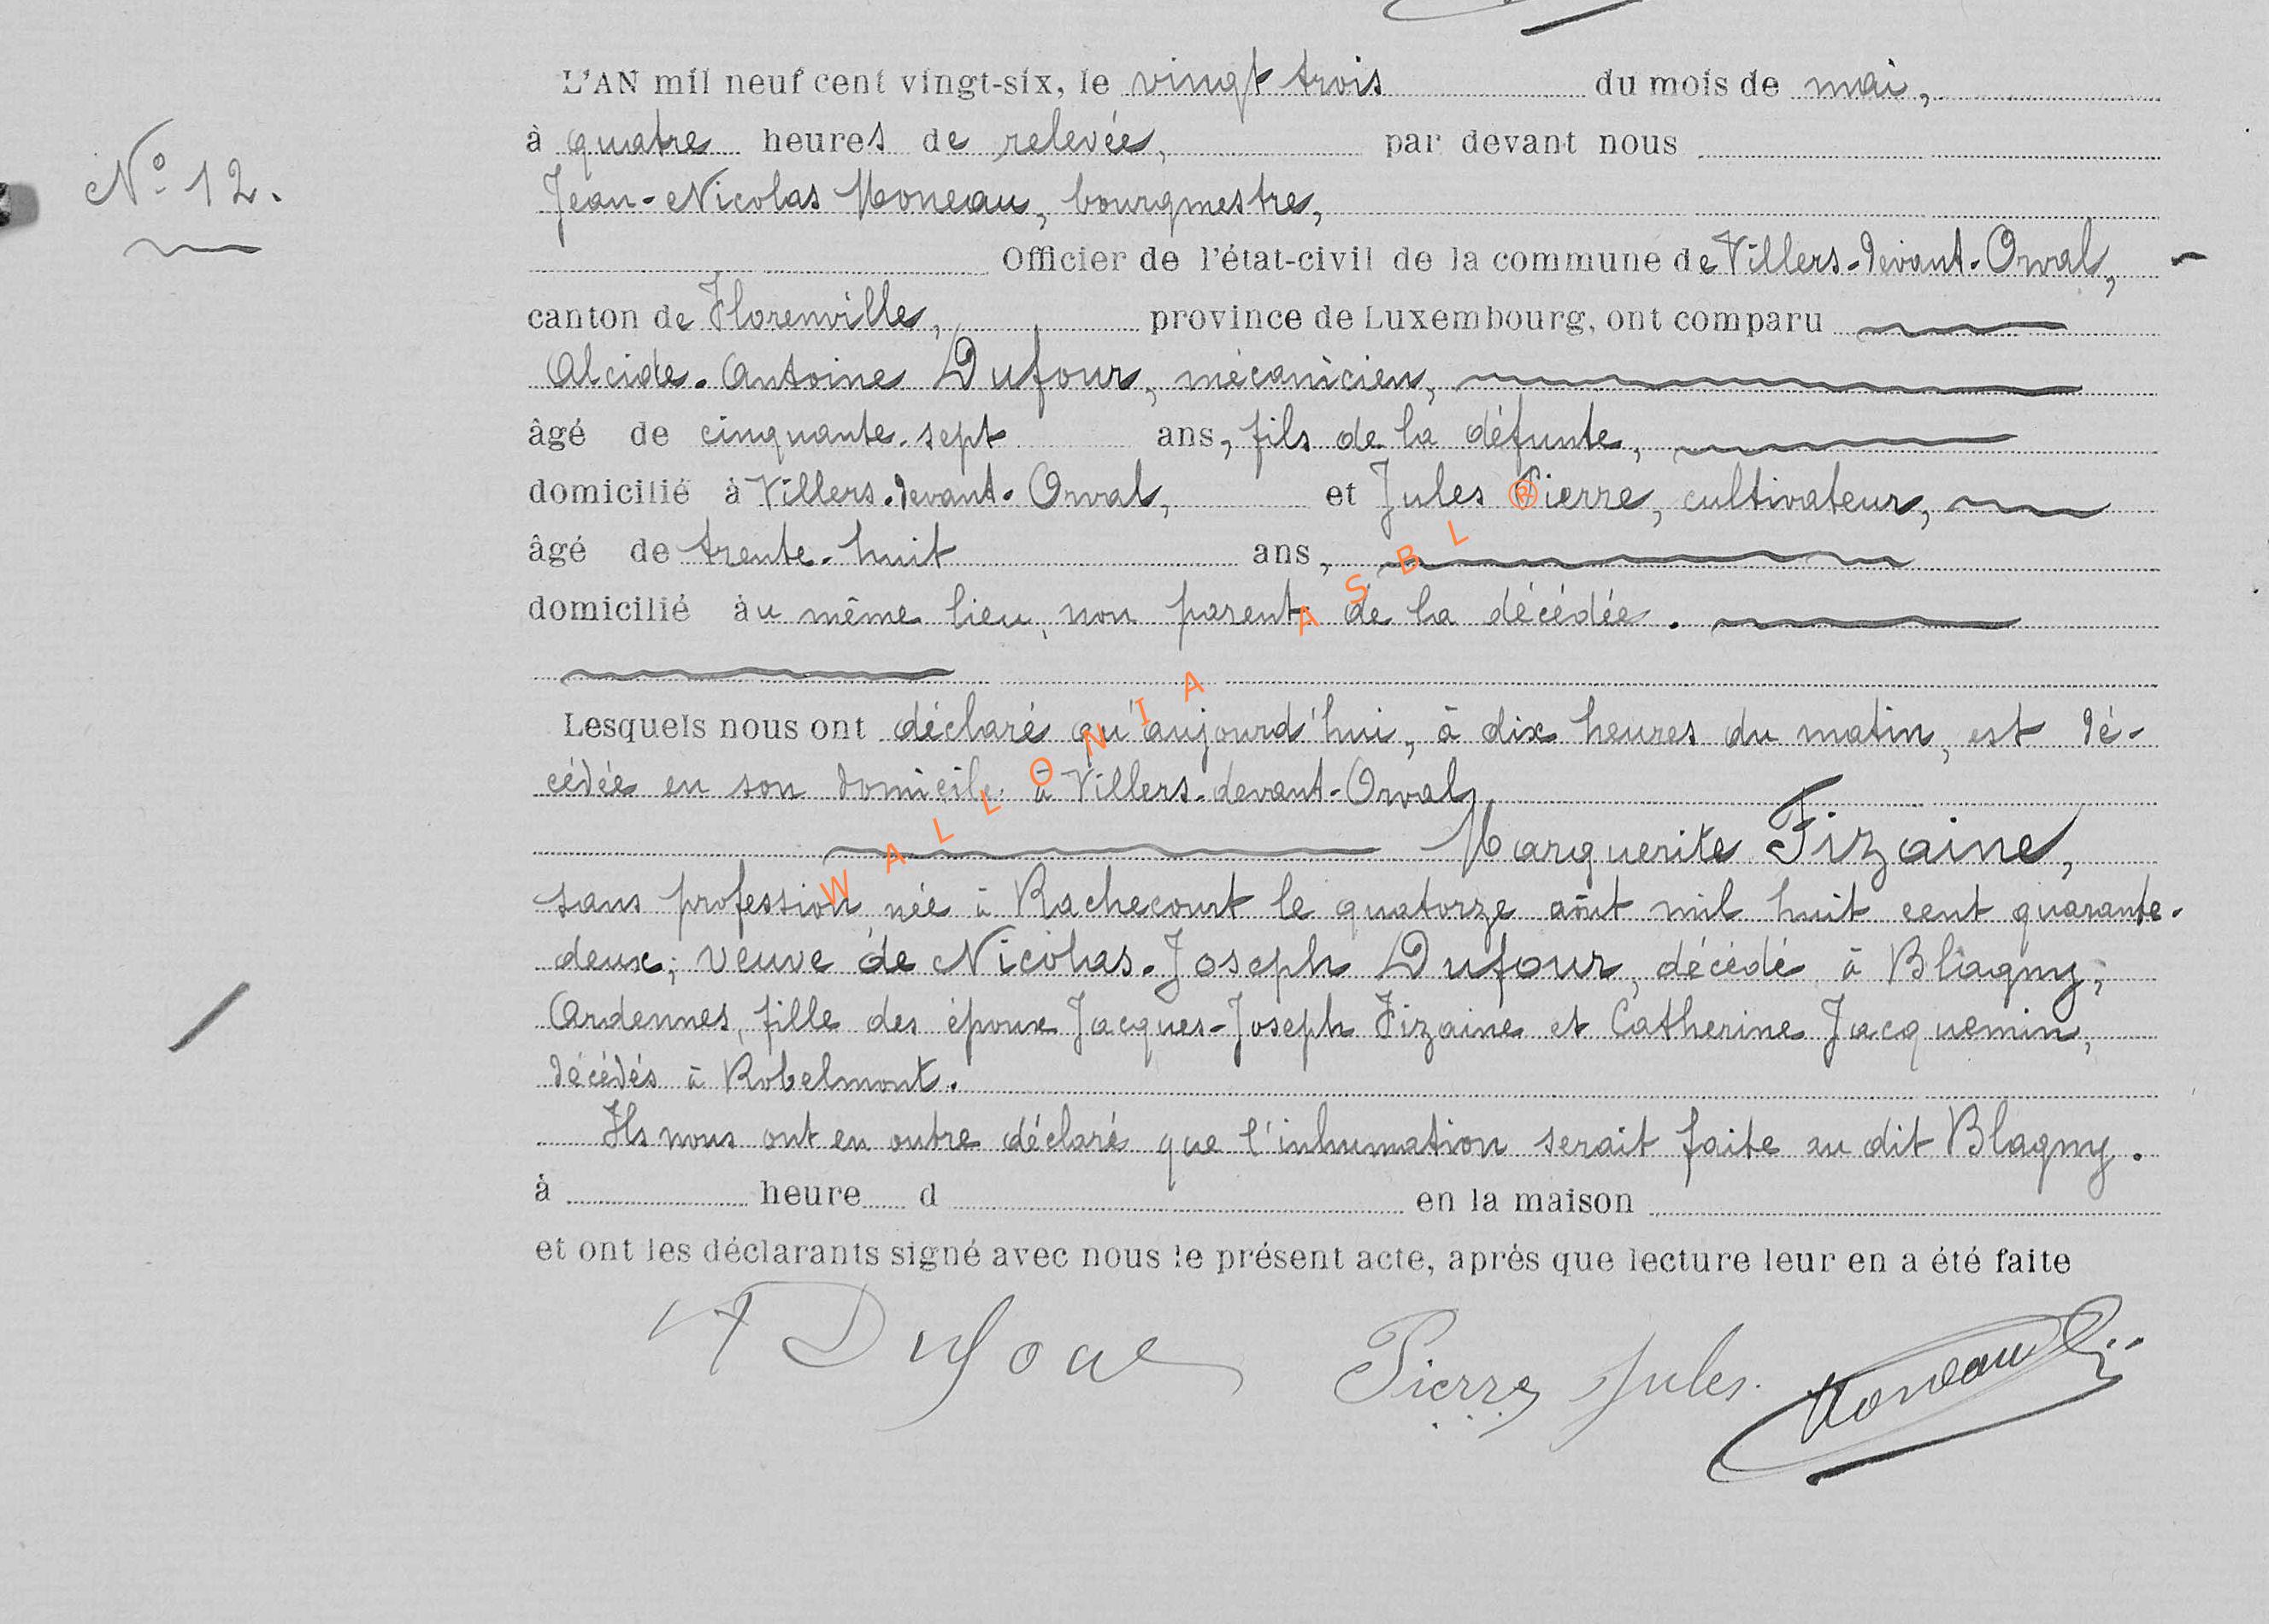 L'AN mil neuf cent vingt-six, le vingt trois du mois de mai,
à quatre heures de relevée, par devant nous
N° 12.
Jean-Nicolas Moneau, bourgmestre,
Officier de l'état-civil de la commune de Villers-devant-Orval,
canton de Florenville, province de Luxembourg, ont comparu
Alcide-Antoine Dufour, mécanicien,
âgé de cinquante-sept ans, fils de la défunte,
domicilié à Villers-devant-Orval, et Jules Pierre, cultivateur,
âgé de trente-huit ans,
domicilié au même lieu, non parent de la décédée.
Lesquels nous ont déclaré qu'aujourd'hui, à dix heures du matin, est dé-
cédée en son domicile à Villers-devant-Orval
Marguerite Fizaine,
sans profession née à Rachecourt le quatorze août mil huit cent quarante-
deux, veuve de Nicolas-Joseph Dufour, décédé à Blagny,
Ardennes, fille des époux Jacques-Joseph Fizaine et Catherine Jacquemin,
décédés à Robelmont.
Ils nous ont en outre déclaré que l'inhumation serait faite au dit Blagny.
à heure d en la maison
et ont les déclarants signé avec nous le présent acte, après que lecture leur en a été faite
A Dufour Pierre Jules. Moneau
WALLONIA ASBL ®